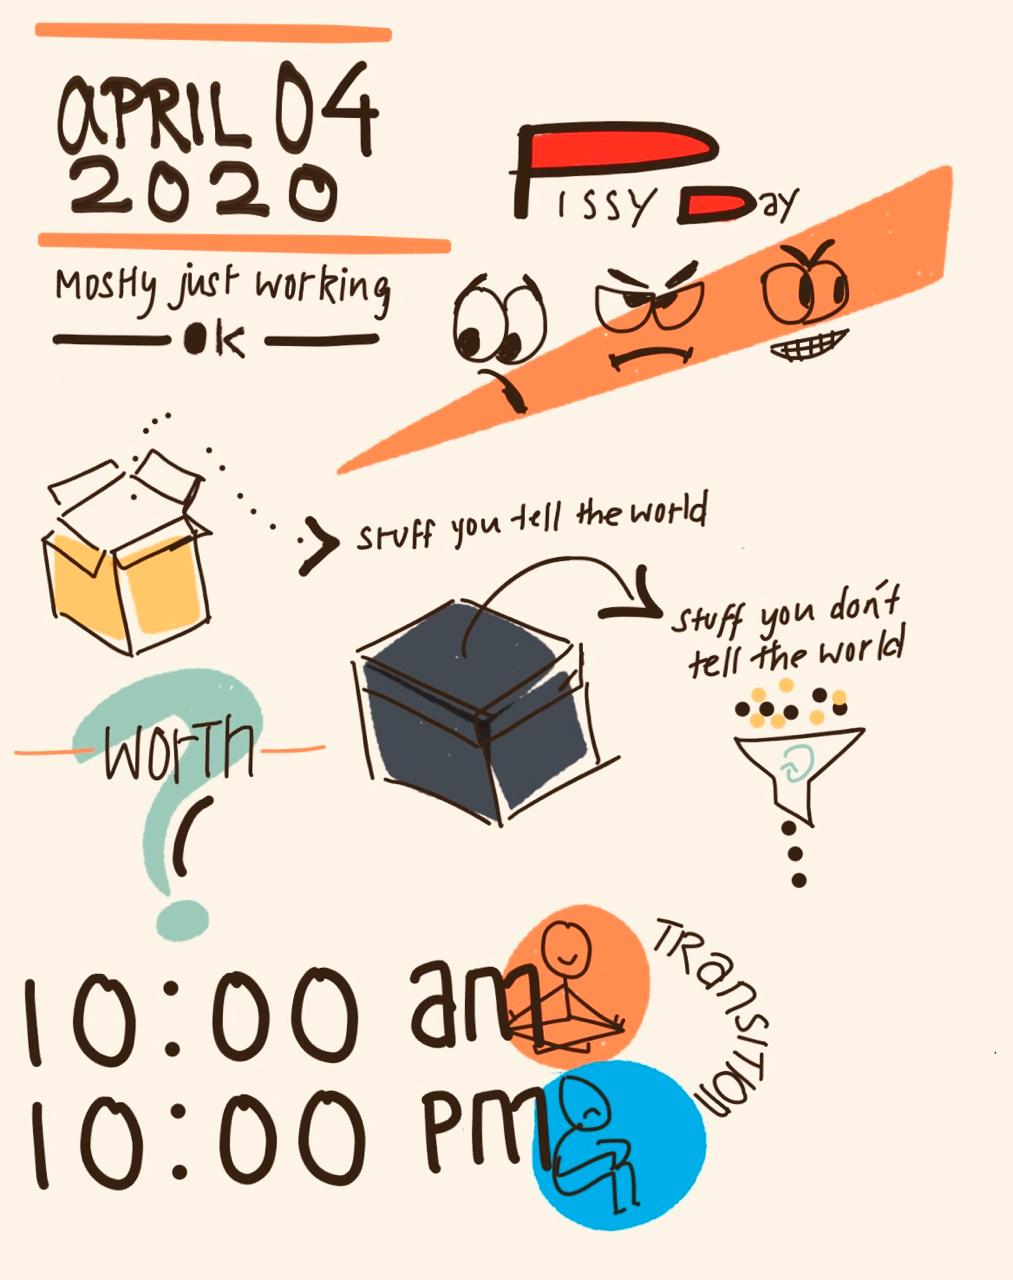 APRIL 04
2020
Mostly just working
OK
Pissy Day
stuff you tell the world
stuff you don't
tell the world
worTh
10:00 am
10:00 pm
TRanSITION